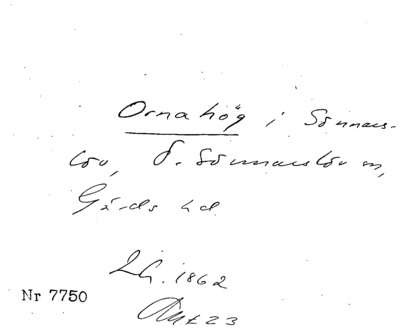 Ornahög i Sönnars-
löv, Ö. Sönnarslöv sn,
Gärds hd
LG. 1862
Nr 7750